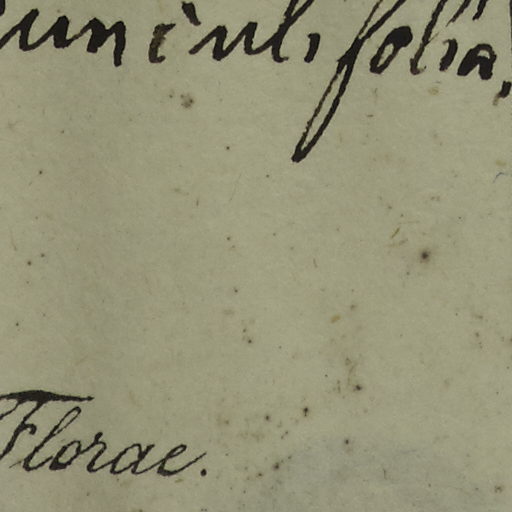 unculifolia,
Florae.